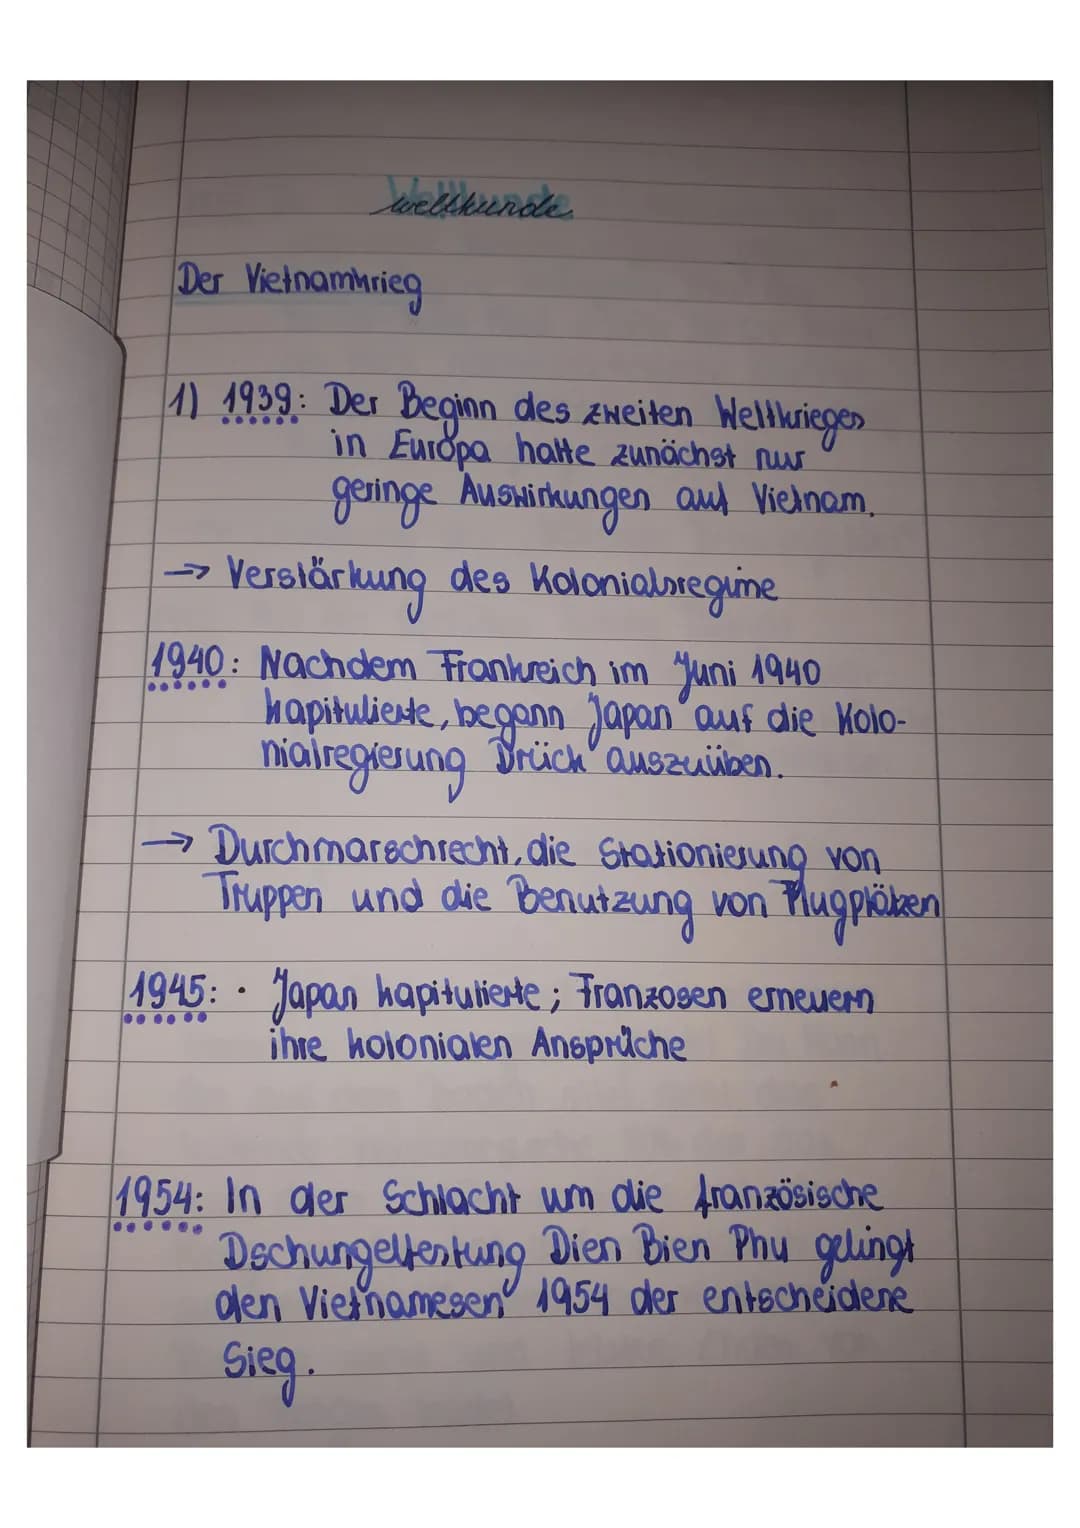 Weltkunde
Der Vietnamkrieg
1) 1939: Der Beginn des zweiten Weltkrieges
in Europa hatte zunächst nur
geringe Auswirkungen auf Vietnam.
→ Verstärkung des Kolonialsregime
1940: Nachdem Frankreich im Juni 1940
kapitulierte, begann Japan auf die Kolo-
nialregierung Drück auszuüben.
→ Durchmarschrecht, die Stationierung von
Truppen und die Benutzung von Flugplätzen
1945: · Japan kapitulierte; Franzosen erneuern
ihre kolonialen Ansprüche
1954: In der Schlacht um die französische
Dschungelfestung Dien Bien Phu gelingt
den Vietnamesen 1954 der entscheidene
Sieg.